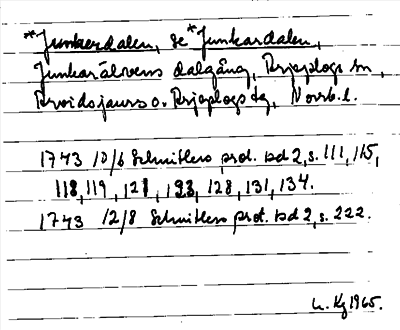 *Junkerdalen, se *Junkardalen,
Junkarälvens dalgång, Arjeplogs sn,
Arvidsjaurs o. Arjeplogs tg, Norrb. l.
1743 10/6 Schnitlers prot. bd 2, s. 111, 115,
118, 119, 121, 123, 128, 131, 134.
1743 12/8 Schnitlers prot. bd 2, s. 222.
Kg 1965.